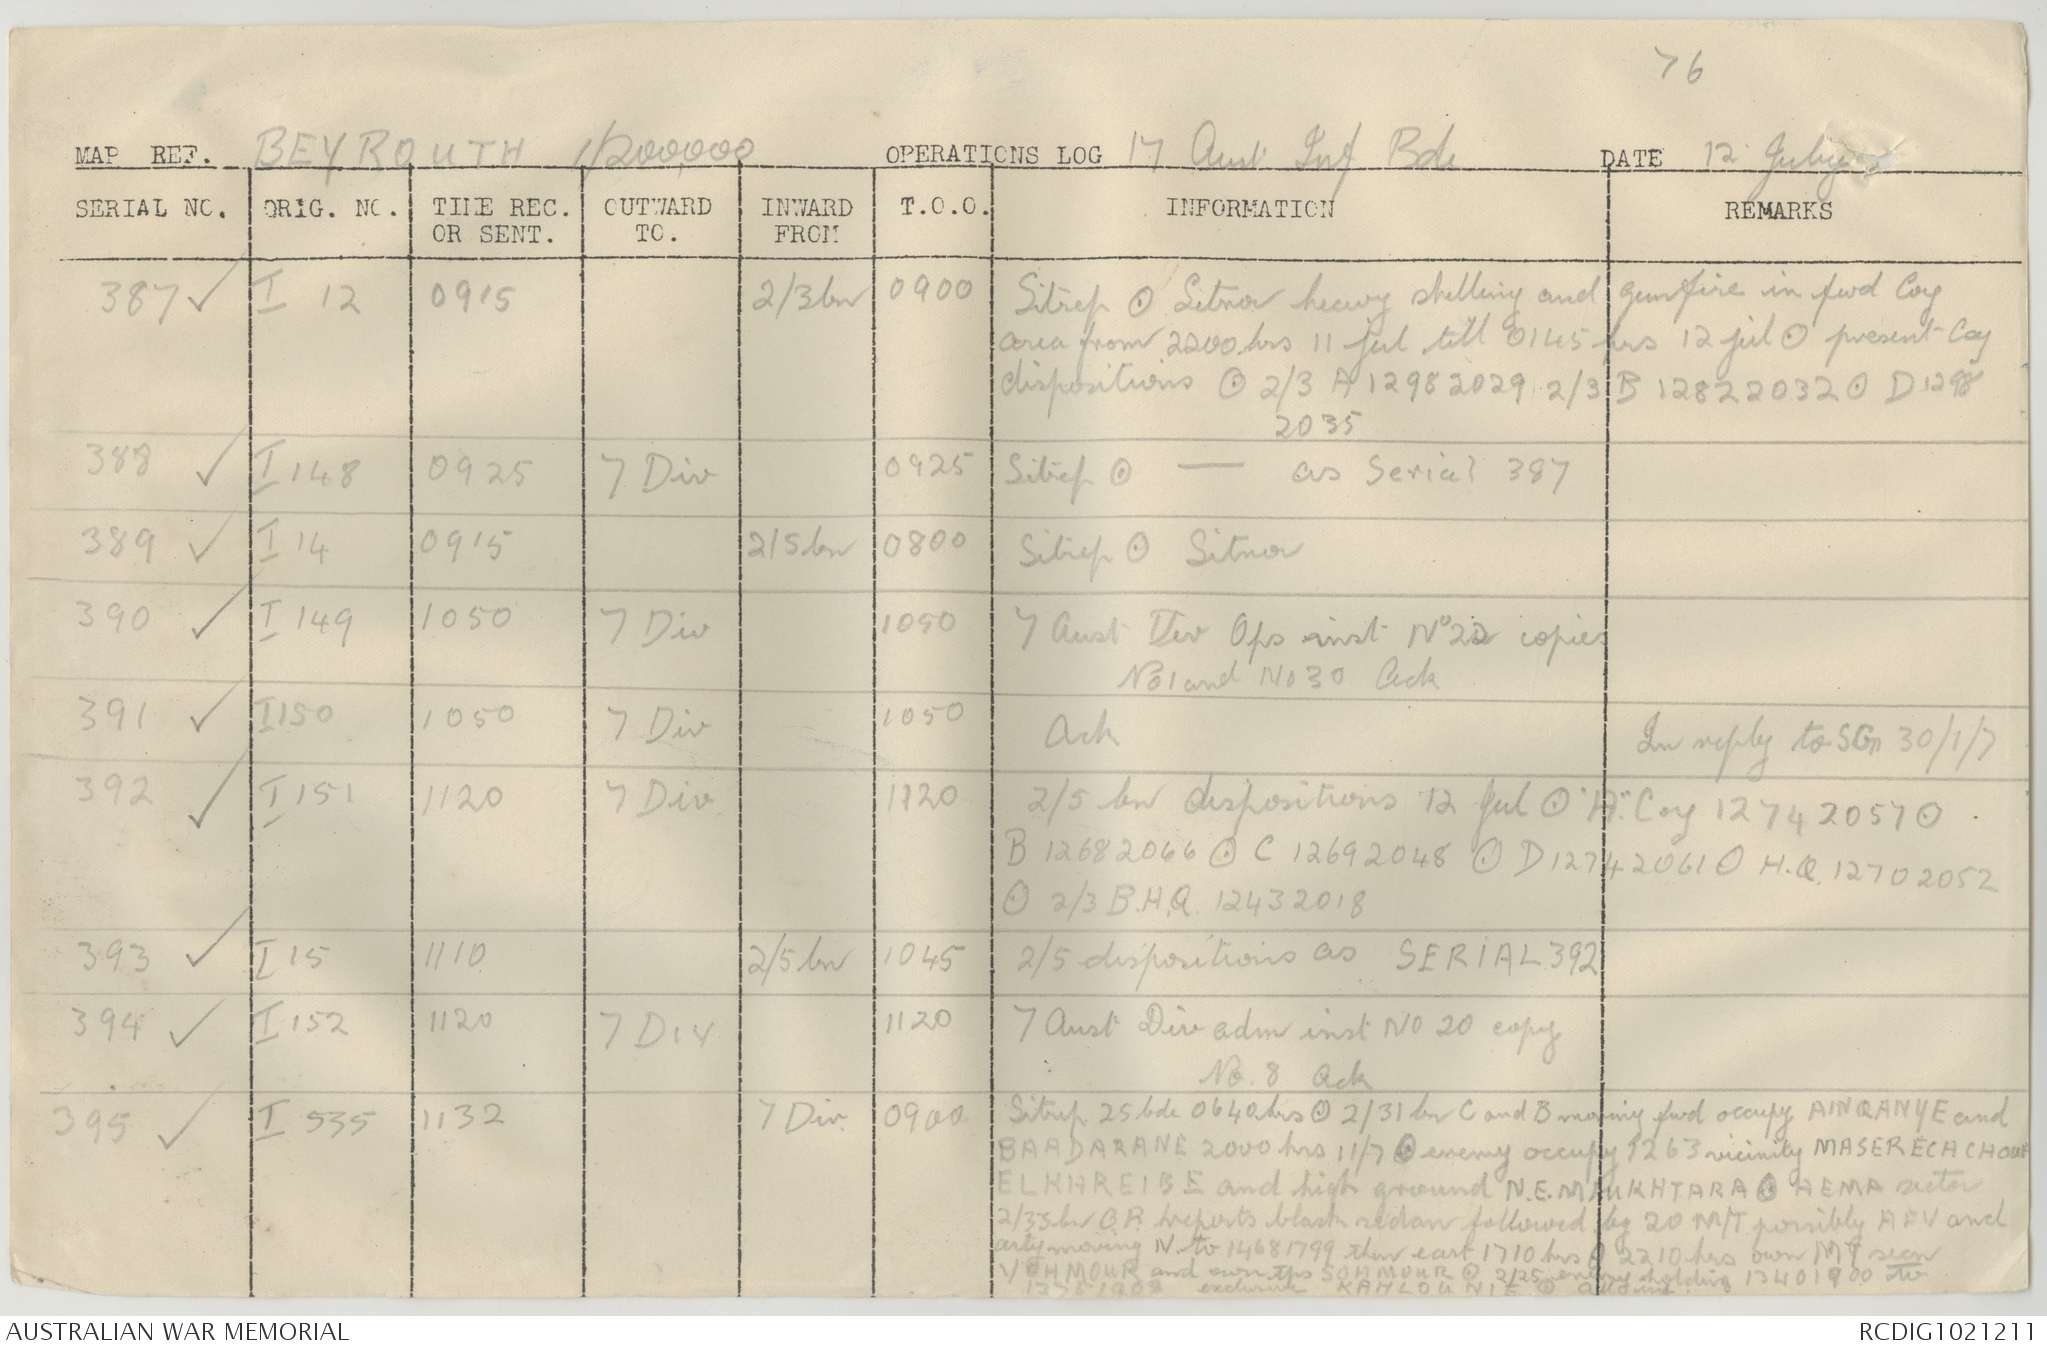 76
MAP REF. BEYROUTH 1/200,000 OPERATIONS LOG 17 Aust Inf Bde DATE 12 July
SERIAL NO. ORIG. NO. TIME REC. OR SENT. OUTWARD TO. INWARD FROM T.O.O. INFORMATION REMARKS
387 ✓ I 12 0915 2/3 bn 0900 Sitrep ⊙ Sitnor heavy shelling and gunfire in fwd Coy
area from 2200 hrs 11 Jul till 0145 hrs 12 Jul ⊙ present Coy
dispositions ⊙ 2/3 A 12982029 2/3 B 12822032 ⊙ D 1298
2035
388 ✓ I 148 0925 7 Div 0925 Sitrep ⊙ — as Serial 387
389 ✓ I 14 0915 2/5 bn 0800 Sitrep ⊙ Sitnor
390 ✓ I 149 1050 7 Div 1050 7 Aust Div Ops inst No 22 copies
No 1 and No 30 Ack
391 ✓ I 150 1050 7 Div 1050 Ack In reply to 30/1/7
392 ✓ I 151 1120 7 Div 1120 2/5 bn dispositions 12 Jul ⊙ "A" Coy 12742057 ⊙
B 12682066 ⊙ C 12692048 ⊙ D 12742061 ⊙ H.Q. 12702052
⊙ 2/3 B.H.Q. 12432018
393 ✓ I 15 1110 2/5 bn 1045 2/5 dispositions as SERIAL 392
394 ✓ I 152 1120 7 Div 1120 7 Aust Div adm inst No 20 copy
No. 8 Ack
395 ✓ I 535 1132 7 Div 0900 Sitrep 25 bde 0640 hrs ⊙ 2/31 bn C and B moving fwd occupy AINQANYE and
BAADARANE 2000 hrs 11/7 ⊙ enemy occupy 1263 vicinity MASERECACHOUF
ELKHAREIBE and high ground N.E. MOUKHTARA ⊙ sector
2/33 bn O.P. reports black sedan followed by 20 M/T possibly AFV and
arty moving N. to 14681799 then east 1710 hrs ⊙ 2210 hrs own MT seen
YOHMOUR and own tps SOHMOUR ⊙ 2/25 enemy holding 13401900 to
exclusive KAHLOUNIE ⊙
AUSTRALIAN WAR MEMORIAL RCDIG1021211